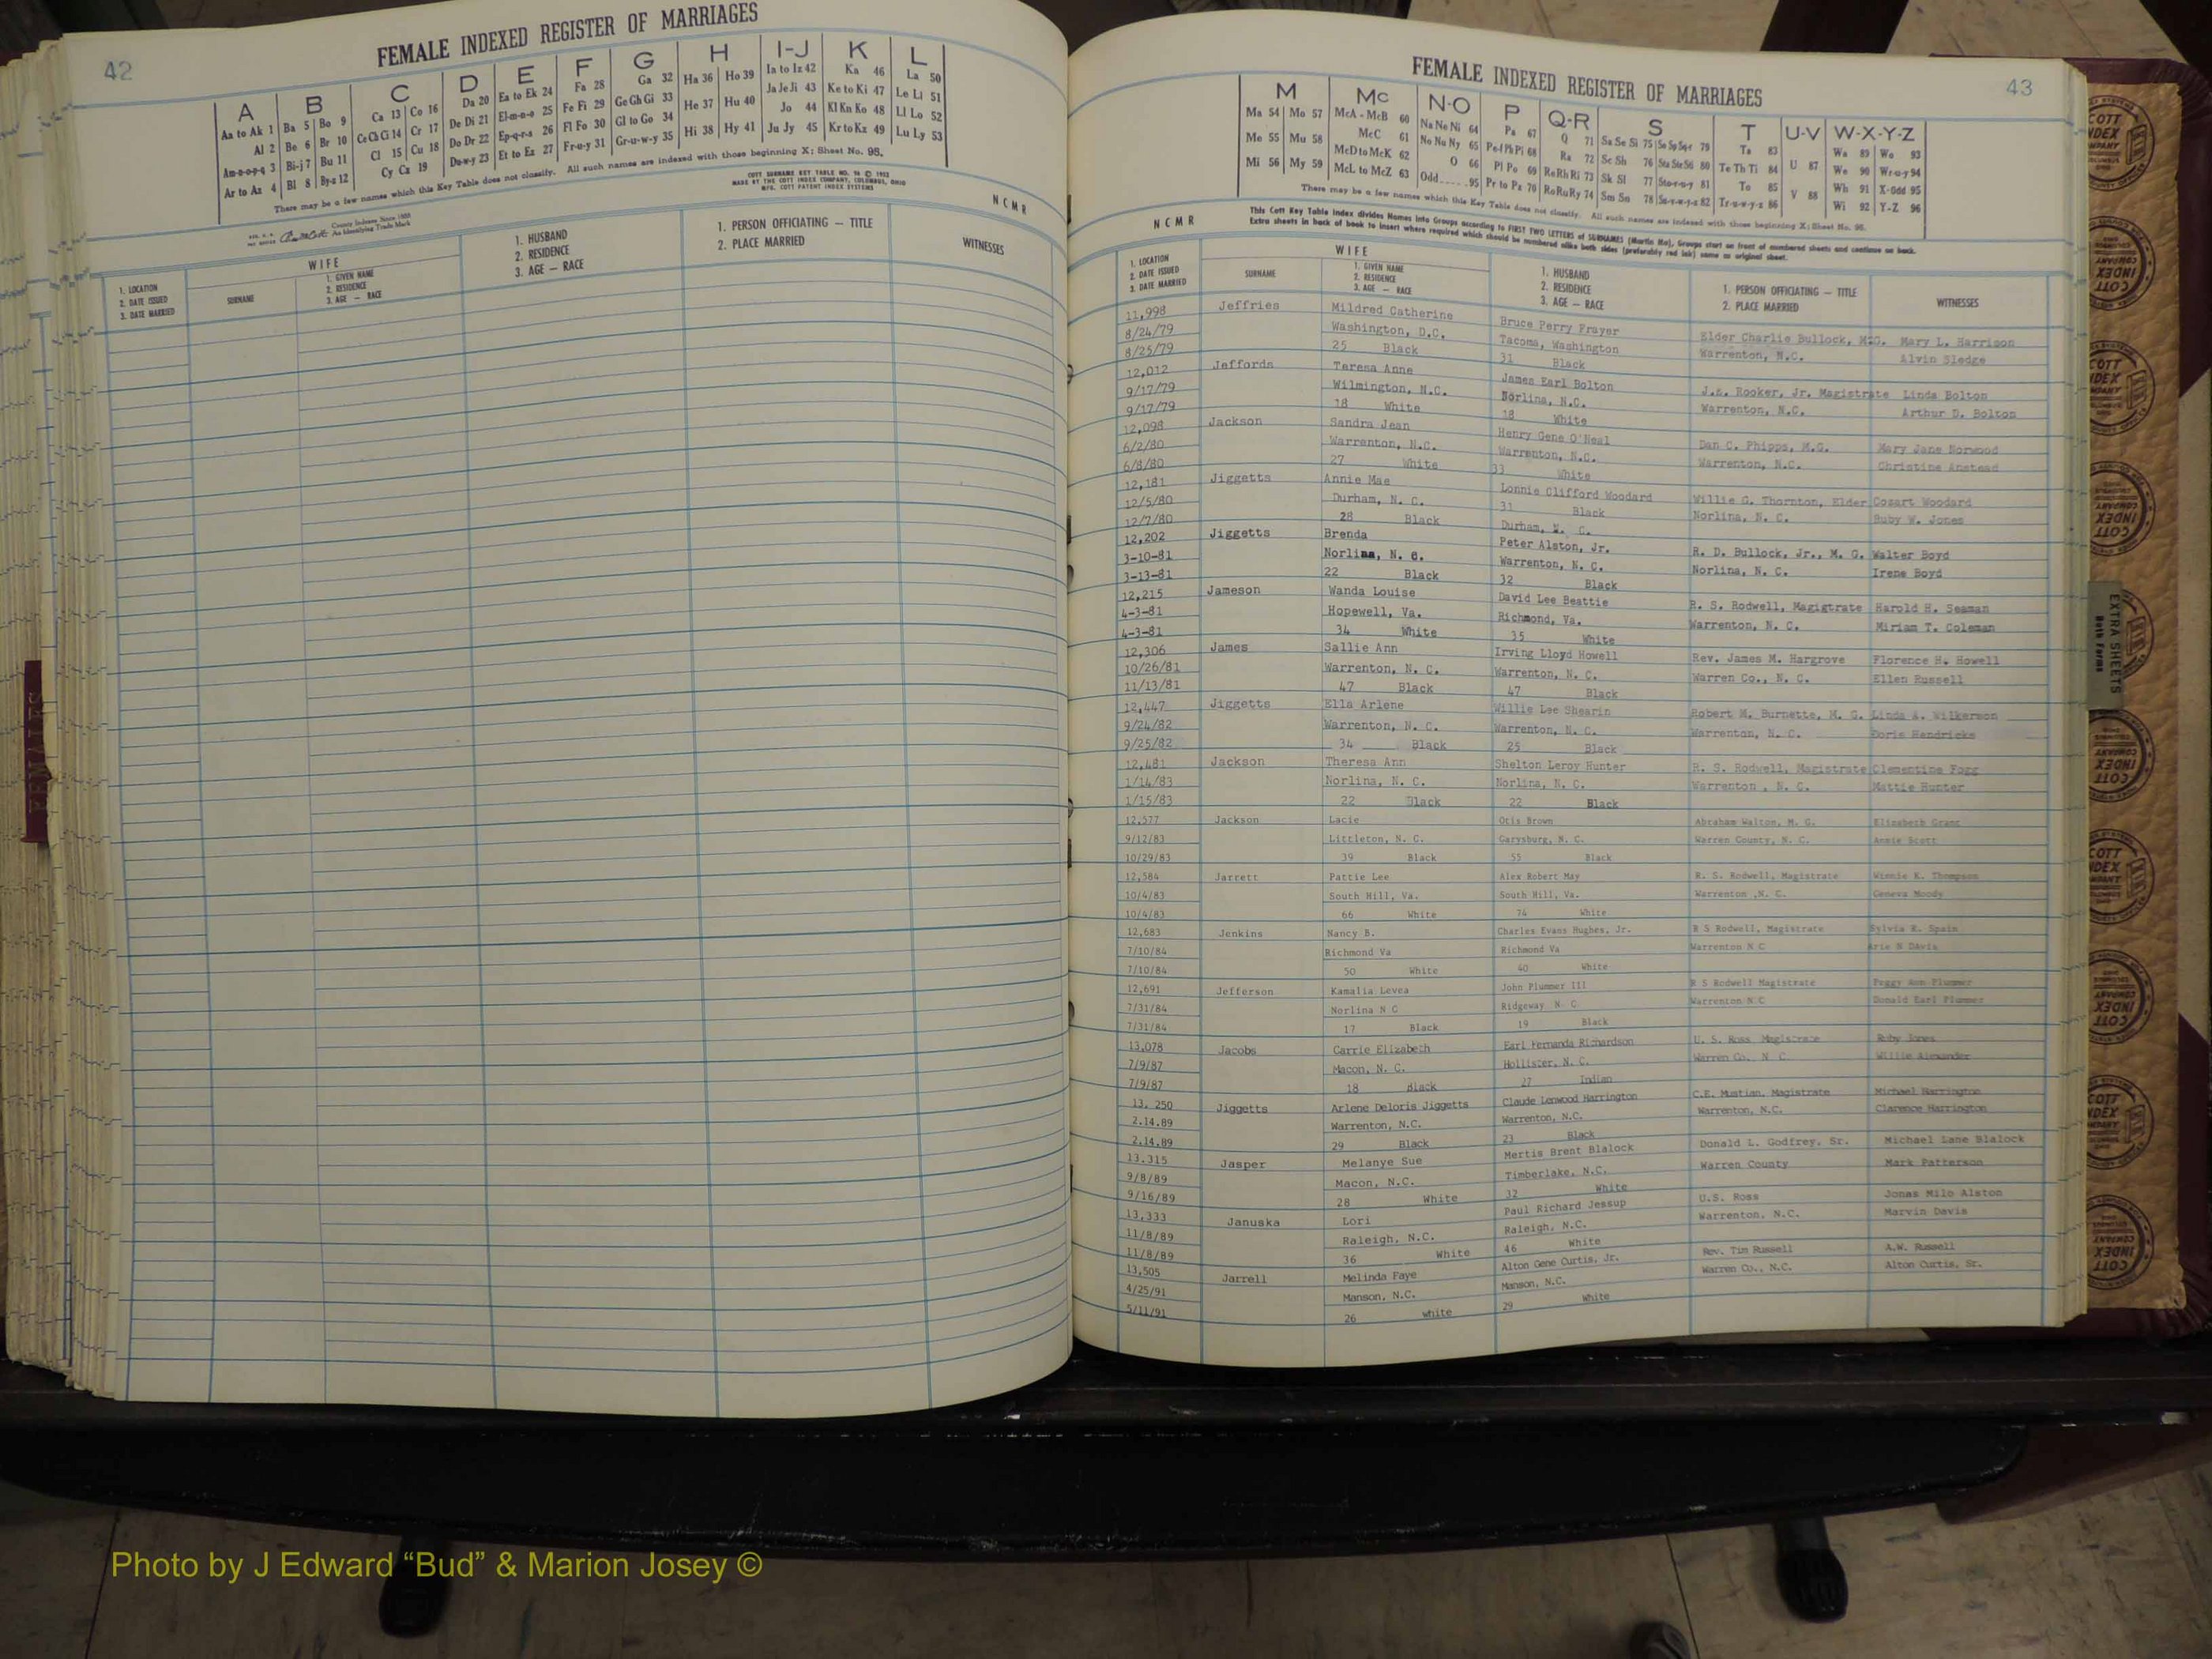 42
FEMALE INDEXED REGISTER OF MARRIAGES
A B C D E F G H I-J K L
Aa to Ak 1 Ba 5 Bo 9 Ca 13 Co 16 Da 20 Ea to Ek 24 Fa 28 Ga 32 Ha 36 Ho 39 Ia to Iz 42 Ka 46 La 50
Al 2 Be 6 Br 10 Ce Ch Ci 14 Cr 17 De Di 21 El-m-n-o 25 Fe Fi 29 Ge Gh Gi 33 He 37 Hu 40 Ja Je Ji 43 Ke to Ki 47 Le Li 51
Am-n-o-p-q 3 Bi-j 7 Bu 11 Cl 15 Cu 18 Do Dr 22 Ep-q-r-s 26 Fl Fo 30 Gl to Go 34 Hi 38 Hy 41 Jo 44 Kl Kn Ko 48 Ll Lo 52
Ar to Az 4 Bl 8 By-z 12 Cy Cz 19 Du-w-y 23 Et to Ez 27 Fr-u-y 31 Gr-u-w-y 35 Ju Jy 45 Kr to Kz 49 Lu Ly 53
There may be a few names which this Key Table does not classify. All such names are indexed with those beginning X; Sheet No. 95.
COTT SURNAME KEY TABLE NO. 96 © 1953
MADE BY THE COTT INDEX COMPANY, COLUMBUS, OHIO
MFG. COTT PATENT INDEX SYSTEMS
County Indexes Since 1888
An Identifying Trade Mark
NCMR
1. LOCATION
2. DATE ISSUED
3. DATE MARRIED
WIFE
SURNAME
1. GIVEN NAME
2. RESIDENCE
3. AGE — RACE
1. HUSBAND
2. RESIDENCE
3. AGE — RACE
1. PERSON OFFICIATING — TITLE
2. PLACE MARRIED
WITNESSES
FEMALES
FEMALE INDEXED REGISTER OF MARRIAGES
43
M Mc N-O P Q-R S T U-V W-X-Y-Z
Ma 54 Mo 57 McA - McB 60 Na Ne Ni 64 Pa 67 Q 71 Sa Se Si 75 So Sp Sq-r 79 Ta 83 U 87 Wa 89 Wo 93
Me 55 Mu 58 McC 61 No Nu Ny 65 Pe-f Ph Pi 68 Ra 72 Sc Sh 76 Sta Ste Sti 80 Te Th Ti 84 We 90 Wr-u-y 94
Mi 56 My 59 McD to McK 62 O 66 Pl Po 69 Re Rh Ri 73 Sk Sl 77 Sto-r-u-y 81 To 85 V 88 Wh 91 X-Odd 95
McL to McZ 63 Odd 95 Pr to Pz 70 Ro Ru Ry 74 Sm Sn 78 Su-v-w-y-z 82 Tr-u-w-y-z 86 Wi 92 Y-Z 96
There may be a few names which this Key Table does not classify. All such names are indexed with those beginning X; Sheet No. 95.
This Cott Key Table Index divides Names into Groups according to FIRST TWO LETTERS of SURNAMES (Martin Ma), Groups start on front of numbered sheets and continue on back.
Extra sheets in back of book to insert where required which should be numbered alike both sides (preferably red ink) same as original sheet.
NCMR
1. LOCATION
2. DATE ISSUED
3. DATE MARRIED
WIFE
SURNAME
1. GIVEN NAME
2. RESIDENCE
3. AGE — RACE
1. HUSBAND
2. RESIDENCE
3. AGE — RACE
1. PERSON OFFICIATING — TITLE
2. PLACE MARRIED
WITNESSES
11,998 Jeffries Mildred Catherine Bruce Perry Frayer Elder Charlie Bullock, M.G. Mary L. Harrison
8/24/79 Washington, D.C. Tacoma, Washington Warrenton, N.C. Alvin Sledge
8/25/79 25 Black 31 Black
12,012 Jeffords Teresa Anne James Earl Bolton J.E. Rooker, Jr. Magistrate Linda Bolton
9/17/79 Wilmington, N.C. Norlina, N.C. Warrenton, N.C. Arthur D. Bolton
9/17/79 18 White 18 White
12,098 Jackson Sandra Jean Henry Gene O'Neal Dan C. Phipps, M.G. Mary Jane Norwood
6/2/80 Warrenton, N.C. Warrenton, N.C. Warrenton, N.C. Christine Anstead
6/8/80 27 White 33 White
12,181 Jiggetts Annie Mae Lonnie Clifford Woodard Willie G. Thornton, Elder Cozart Woodard
12/5/80 Durham, N. C. 31 Black Norlina, N. C. Ruby W. Jones
12/7/80 28 Black Durham, N. C.
12,202 Jiggetts Brenda Peter Alston, Jr. R. D. Bullock, Jr., M. G. Walter Boyd
3-10-81 Norlina, N. C. Warrenton, N. C. Norlina, N. C. Irene Boyd
3-13-81 22 Black 32 Black
12,215 Jameson Wanda Louise David Lee Beattie R. S. Rodwell, Magistrate Harold H. Seaman
4-3-81 Hopewell, Va. Richmond, Va. Warrenton, N. C. Miriam T. Coleman
4-3-81 34 White 35 White
12,306 James Sallie Ann Irving Lloyd Howell Rev. James M. Hargrove Florence H. Howell
10/26/81 Warrenton, N. C. Warrenton, N. C. Warren Co., N. C. Ellen Russell
11/13/81 47 Black 47 Black
12,447 Jiggetts Ella Arlene Willie Lee Shearin Robert M. Burnette, M. G. Linda A. Wilkerson
9/24/82 Warrenton, N. C. Warrenton, N. C. Warrenton, N. C. Doris Hendricks
9/25/82 34 Black 25 Black
12,481 Jackson Theresa Ann Shelton Leroy Hunter R. S. Rodwell, Magistrate Clementine Fogg
1/14/83 Norlina, N. C. Norlina, N. C. Warrenton , N. C. Mattie Hunter
1/15/83 22 Black 22 Black
12,577 Jackson Lacie Otis Brown Abraham Walton, M. G. Elizabeth Grant
9/12/83 Littleton, N. C. Garysburg, N. C. Warren County, N. C. Annie Scott
10/29/83 39 Black 55 Black
12,584 Jarrett Pattie Lee Alex Robert May R. S. Rodwell, Magistrate Winnie K. Thompson
10/4/83 South Hill, Va. South Hill, Va. Warrenton ,N. C. Geneva Moody
10/4/83 66 White 74 White
12,683 Jenkins Nancy B. Charles Evans Hughes, Jr. R S Rodwell, Magistrate Sylvia R. Spain
7/10/84 Richmond Va Richmond Va Warrenton N C Arie N Davis
7/10/84 50 White 40 White
12,691 Jefferson Kamalia Levea John Plummer III R S Rodwell Magistrate Peggy Ann Plummer
7/31/84 Norlina N C Ridgeway N C Warrenton N C Donald Earl Plummer
7/31/84 17 Black 19 Black
13,078 Jacobs Carrie Elizabeth Earl Fernanda Richardson U. S. Ross Magistrate Ruby Jones
7/9/87 Macon, N. C. Hollister, N. C. Warren Co., N C Willie Alexander
7/9/87 18 Black 27 Indian
13, 250 Jiggetts Arlene Deloris Jiggetts Claude Lenwood Harrington C.E. Mustian, Magistrate Michael Harrington
2.14.89 Warrenton, N.C. Warrenton, N.C. Warrenton, N.C. Clarence Harrington
2.14.89 29 Black 23 Black
13.315 Jasper Melanye Sue Mertis Brent Blalock Donald L. Godfrey, Sr. Michael Lane Blalock
9/8/89 Macon, N.C. Timberlake, N.C. Warren County Mark Patterson
9/16/89 28 White 32 White
13,333 Januska Lori Paul Richard Jessup U.S. Ross Jonas Milo Alston
11/8/89 Raleigh, N.C. Raleigh, N.C. Warrenton, N.C. Marvin Davis
11/8/89 36 White 46 White
13,505 Jarrell Melinda Faye Alton Gene Curtis, Jr. Rev. Tim Russell A.W. Russell
4/25/91 Manson, N.C. Manson, N.C. Warren Co., N.C. Alton Curtis, Sr.
5/11/91 26 white 29 White
EXTRA SHEETS
Both Forms
Photo by J Edward “Bud” & Marion Josey ©